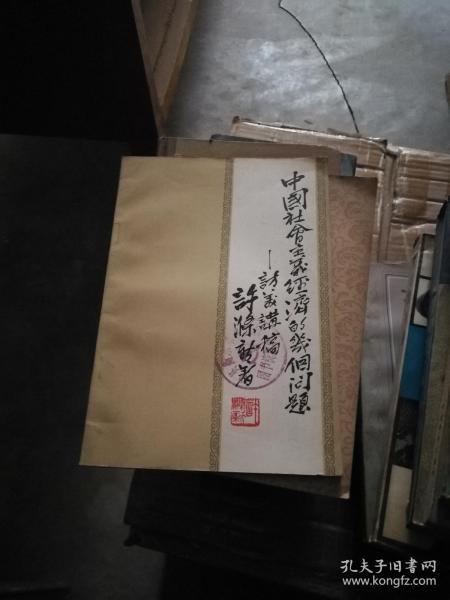 中國社會主義經濟的幾個問題
—訪美講稿
許滌新著
孔夫子旧书网
www.kongfz.com